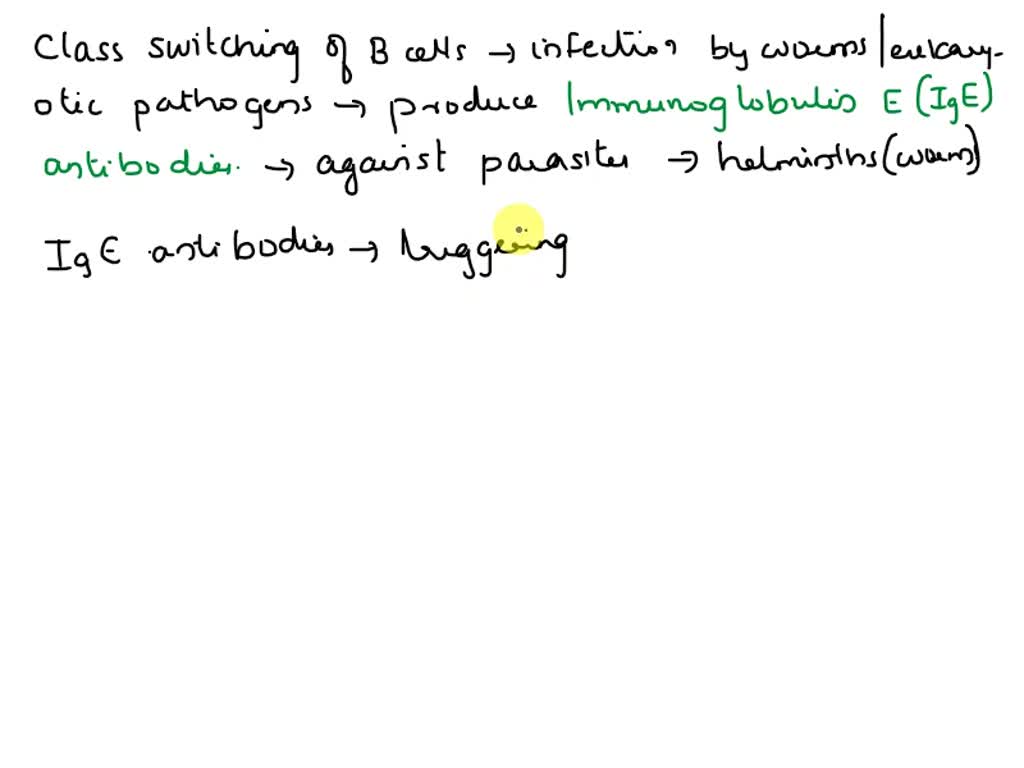 Class switching of B cells → infection by worms/eukary-
otic pathogens → produce Immunoglobulin E (IgE)
antibodies. → against parasites → helminths (worms)
IgE antibodies → triggering